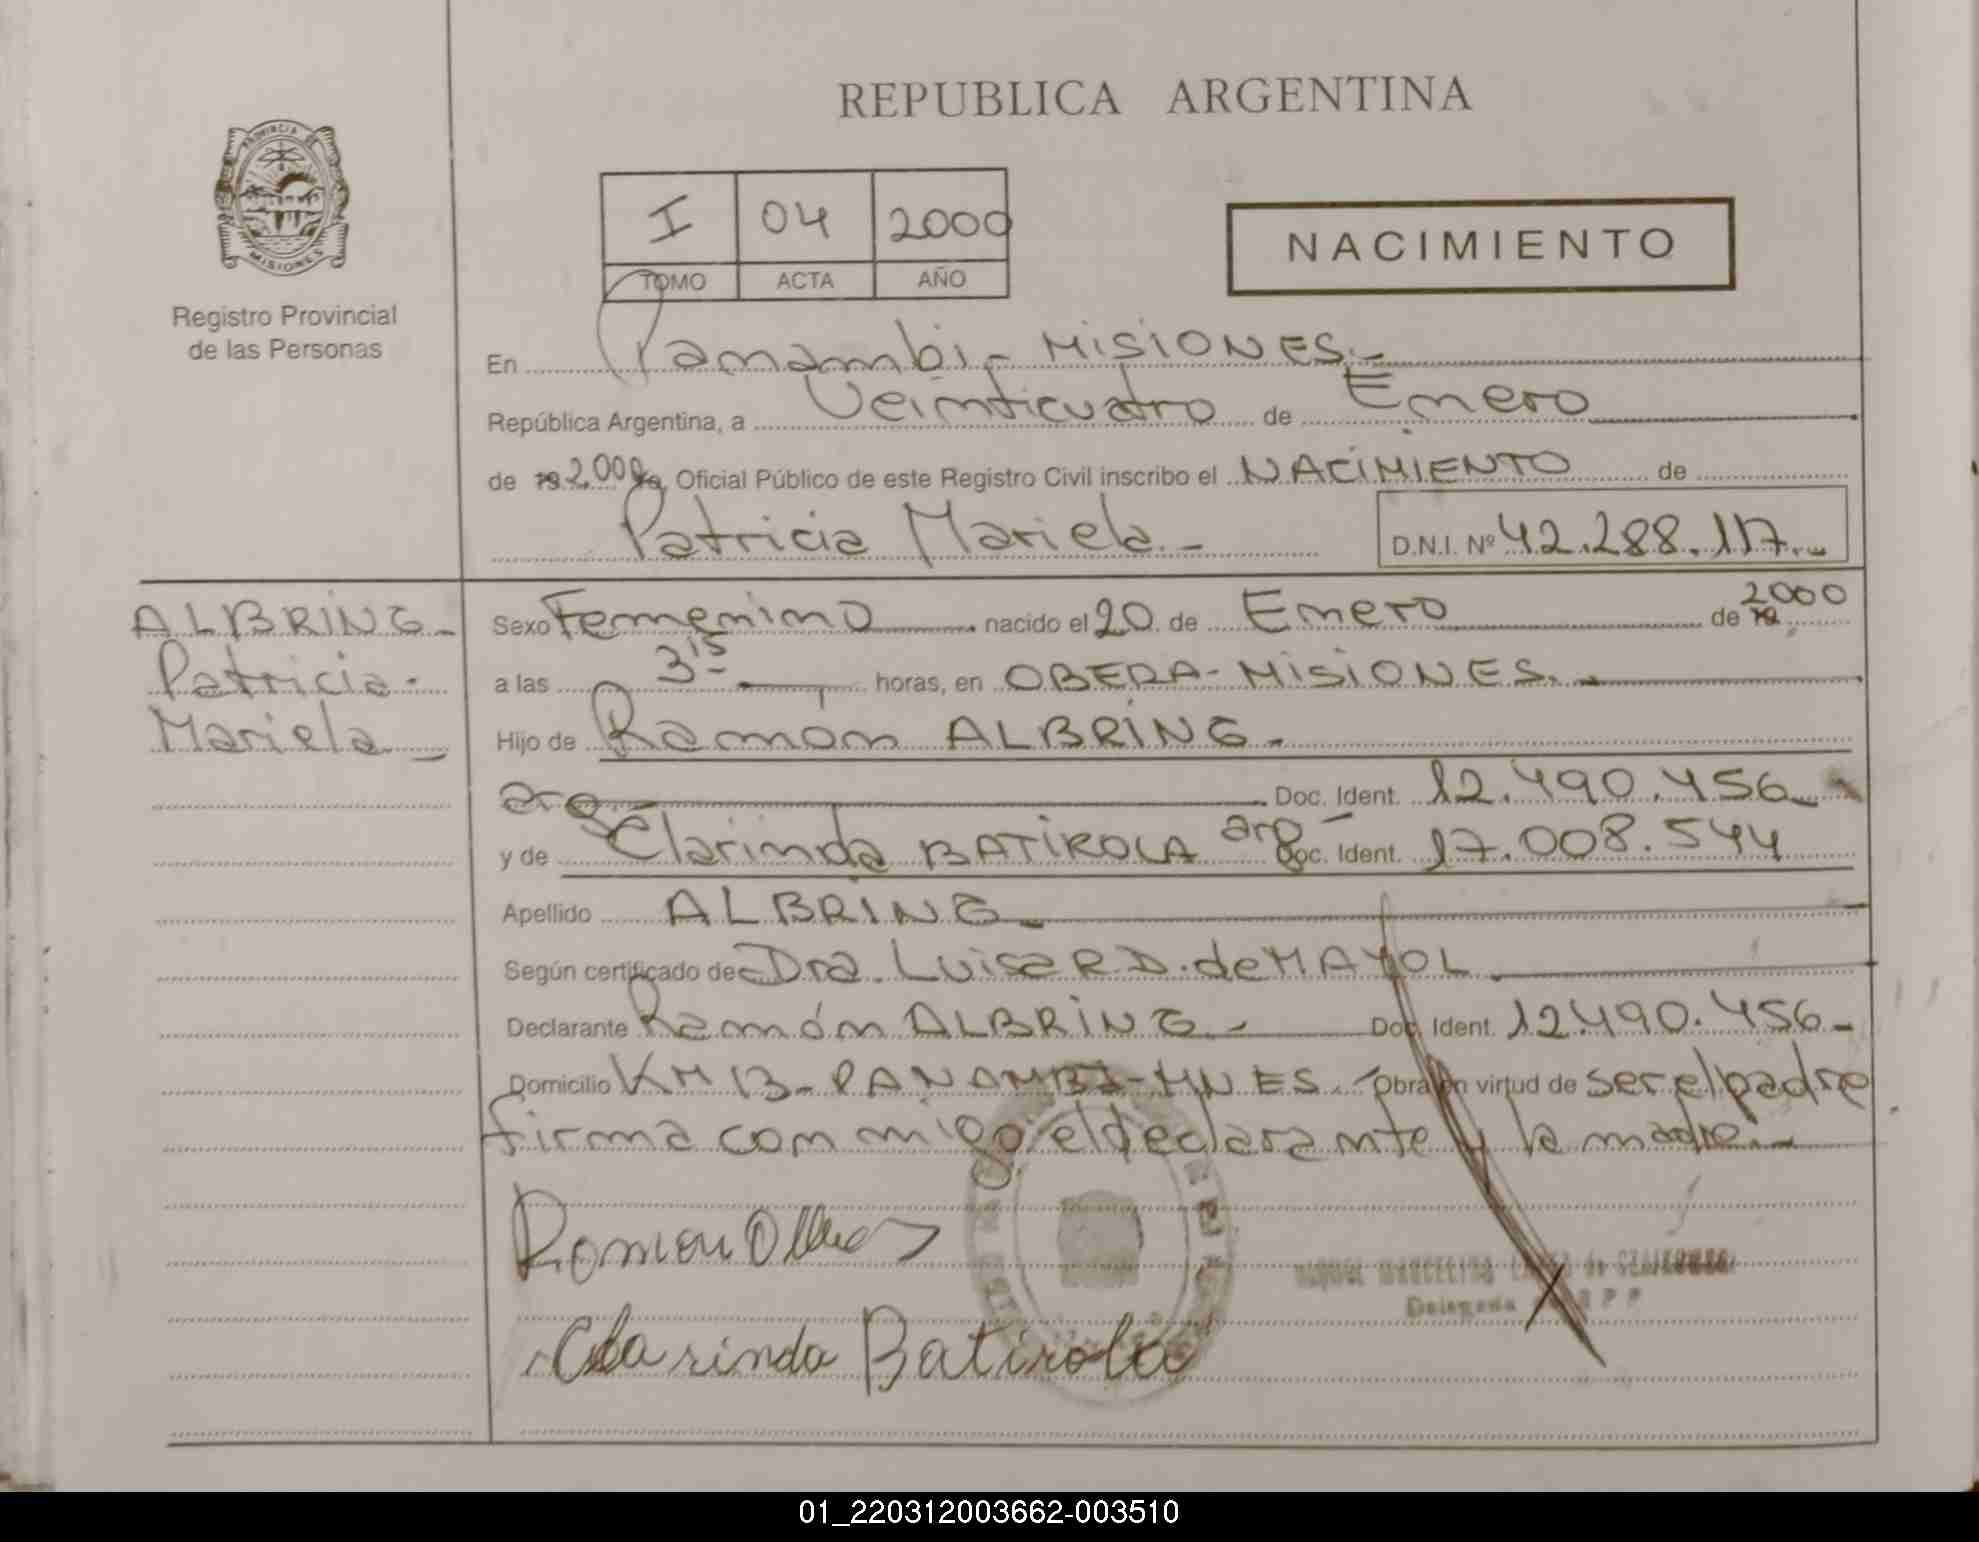 PROVINCIA DE
MISIONES
Registro Provincial
de las Personas
REPUBLICA ARGENTINA
I 04 2000
TOMO ACTA AÑO
NACIMIENTO
En Panambi - MISIONES.-
República Argentina, a Veinticuatro de Enero
de 19 2.000 Oficial Público de este Registro Civil inscribo el NACIMIENTO de
Patricia Mariela.- D.N.I. Nº 42.288.117.-
ALBRING-
Patricia-
Mariela-
Sexo Femenino nacido el 20 de Enero de 19 2000
a las 3 15 horas, en OBERA-MISIONES.-
Hijo de Ramón ALBRING-
arg- Doc. Ident. 12.490.456-
y de Clarinda BATIROLA arg- Doc. Ident. 17.008.544
Apellido ALBRING-
Según certificado de Dra. Luisa R D. de MAYOL
Declarante Ramón ALBRING- Doc. Ident. 12.490.456-
Domicilio KM 13-PANAMBI-MNES.- Obra en virtud de ser el padre
firma con migo el declarante y la madre.-
Clarinda Batirola
Delegada
01_220312003662-003510